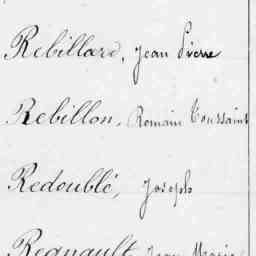 Rebillard, Jean Pierre
Rebillon, Romain Toussaint
Redoublé, Joseph
Regnault, Jean Marie